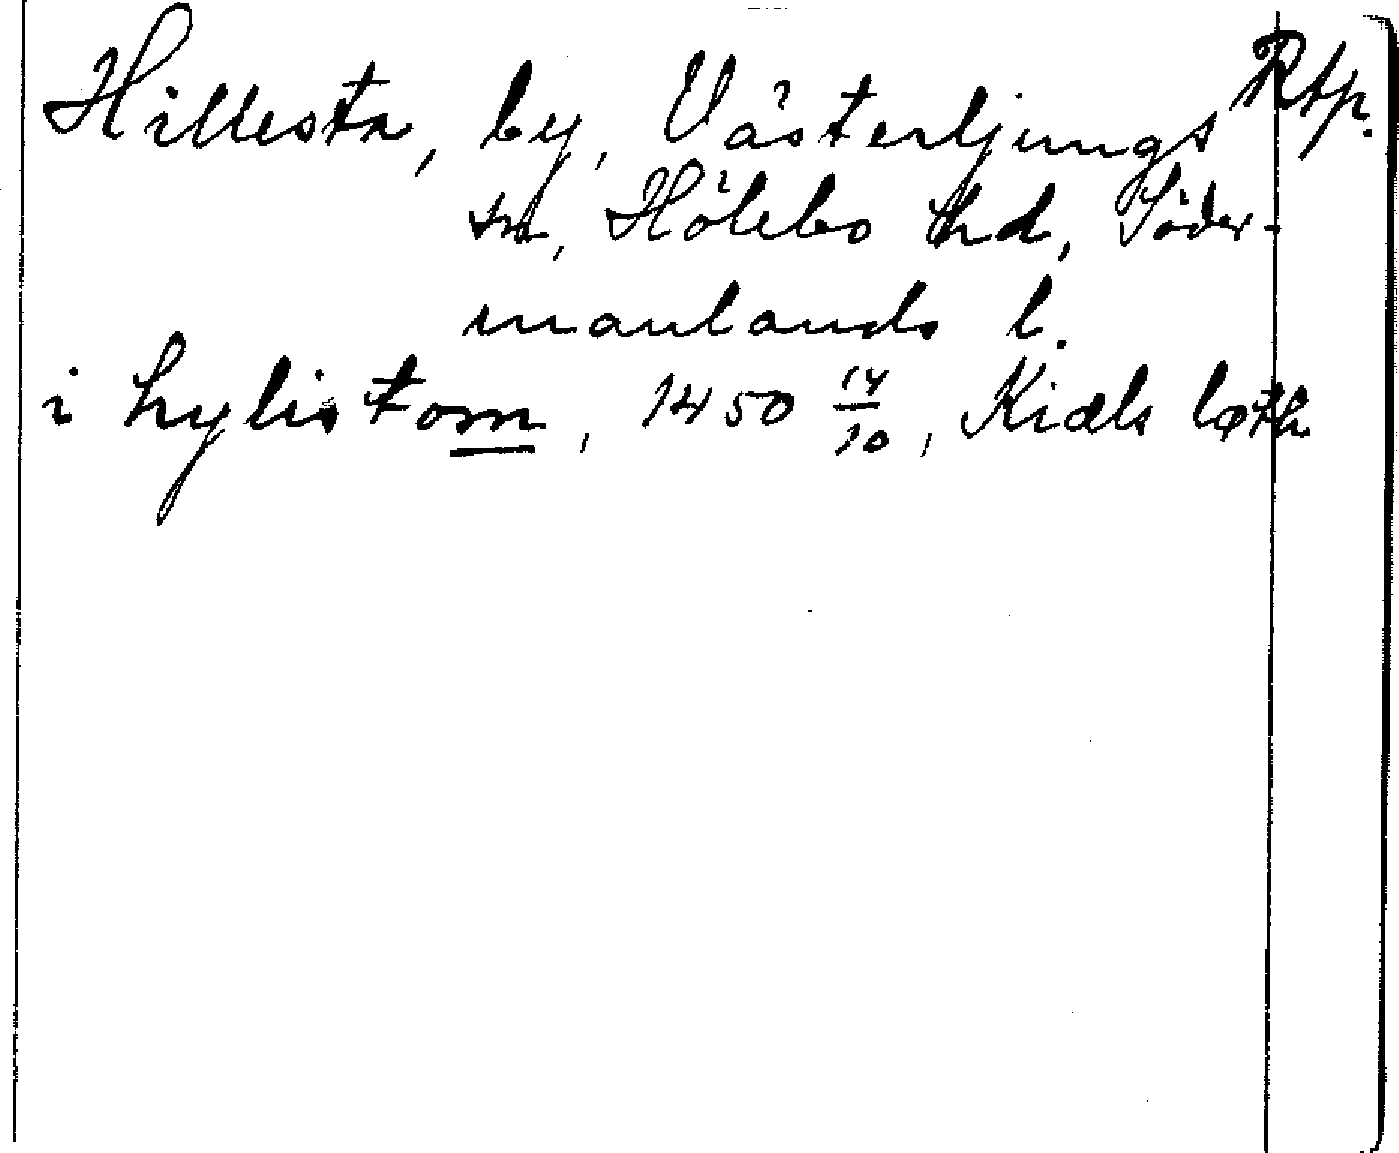 Hillesta, by, Västerljungs Rtp.
sn, Hölebo hd, Söder-
manlands l.
i hylistom, 1450 14/10, Kiæls læth